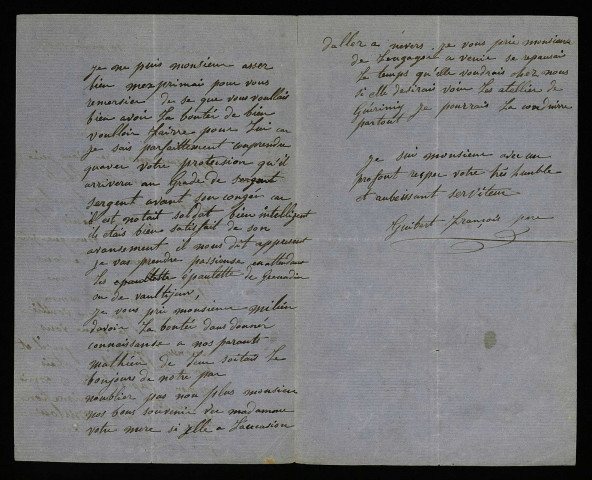 je ne puis monsieur asser
bien mexprimais pour vous
remersier de se que vous voullais
bien avoir la bontée de bien
voulloir faire pour lui car
je sais parfaittement comprendre
quaver votre protension qu'il
arrivera au Grade de sergent
sergent avant son congée car
il est notait soldat bien intelligent
ils étais bien satisfait de son
avansement il nous dit appresent
je vas prendre passiense en attendans
les epaullette épaulette de Grenadier
ou de vaultijeur,
je vous prie monsieur milien
davoir la bontée dans donnér
connaissanse a nos parants
mathieu de leur soitais le
bonjours de notre par
n'oublier pas non plus monsieur
nos bons souvenir du madamme
votre mere si elle a l'aucasion
daller a nevers. je vous prie monsieur
de Lengager a venir se reposais
le temps qu'elle voudrais chez nous
si elle desirais voir les atelier de
Guérinis je pourrais la conduirre
partout
je sui monsieur avec un
profont respec votre très humble
et aubeissant serviteur
Guibert françois pere